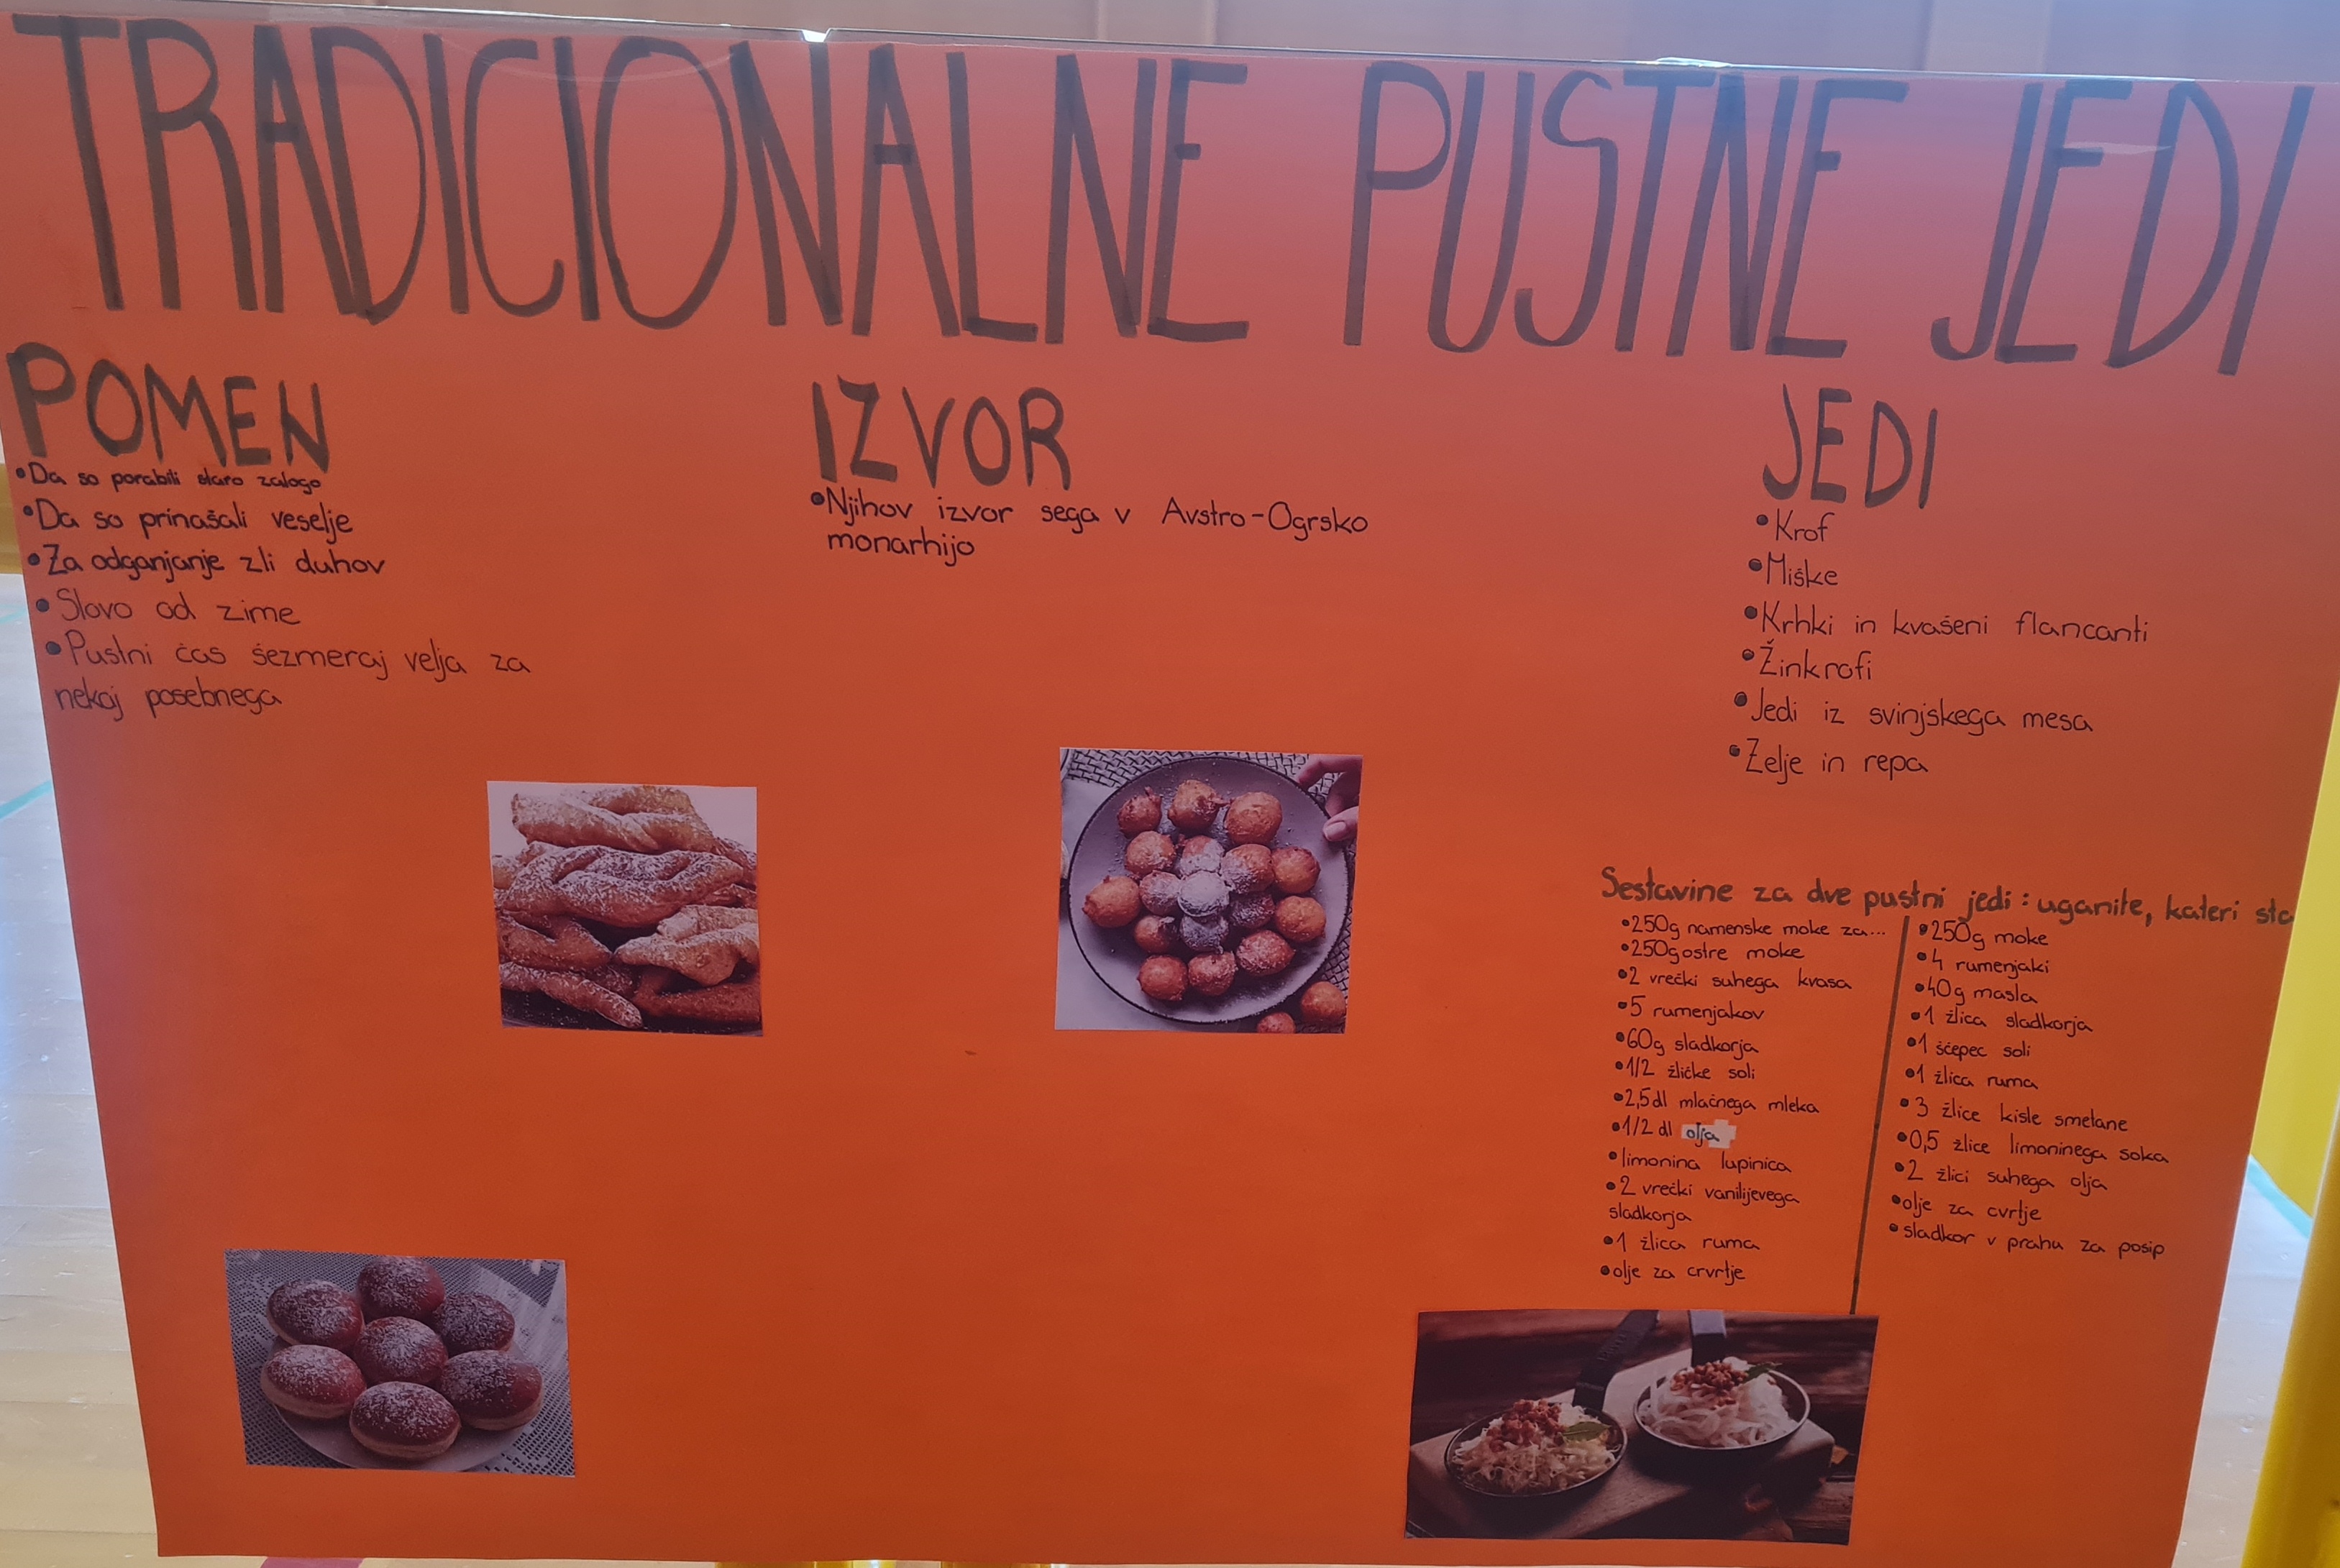 TRADICIONALNE PUSTNE JEDI
POMEN
•Da so porabili staro zalogo
•Da so prinašali veselje
•Za odganjanje zli duhov
•Slovo od zime
•Pustni čas šezmeraj velja za
nekaj posebnega
IZVOR
•Njihov izvor sega v Avstro-Ogrsko
monarhijo
JEDI
•Krof
•Miške
•Krhki in kvašeni flancanti
•Žinkrofi
•Jedi iz svinjskega mesa
•Zelje in repa
Sestavine za dve pustni jedi: uganite, kateri sta
•250g namenske moke za...
•250g ostre moke
•2 vrečki suhega kvasa
•5 rumenjakov
•60g sladkorja
•1/2 žličke soli
•2,5dl mlačnega mleka
•1/2 dl olja
•limonina lupinica
•2 vrečki vanilijevega
sladkorja
•1 žlica ruma
•olje za crvrtje
•250g moke
•4 rumenjaki
•40g masla
•1 žlica sladkorja
•1 ščepec soli
•1 žlica ruma
•3 žlice kisle smetane
•0,5 žlice limoninega soka
•2 žlici suhega olja
•olje za cvrtje
•sladkor v prahu za posip